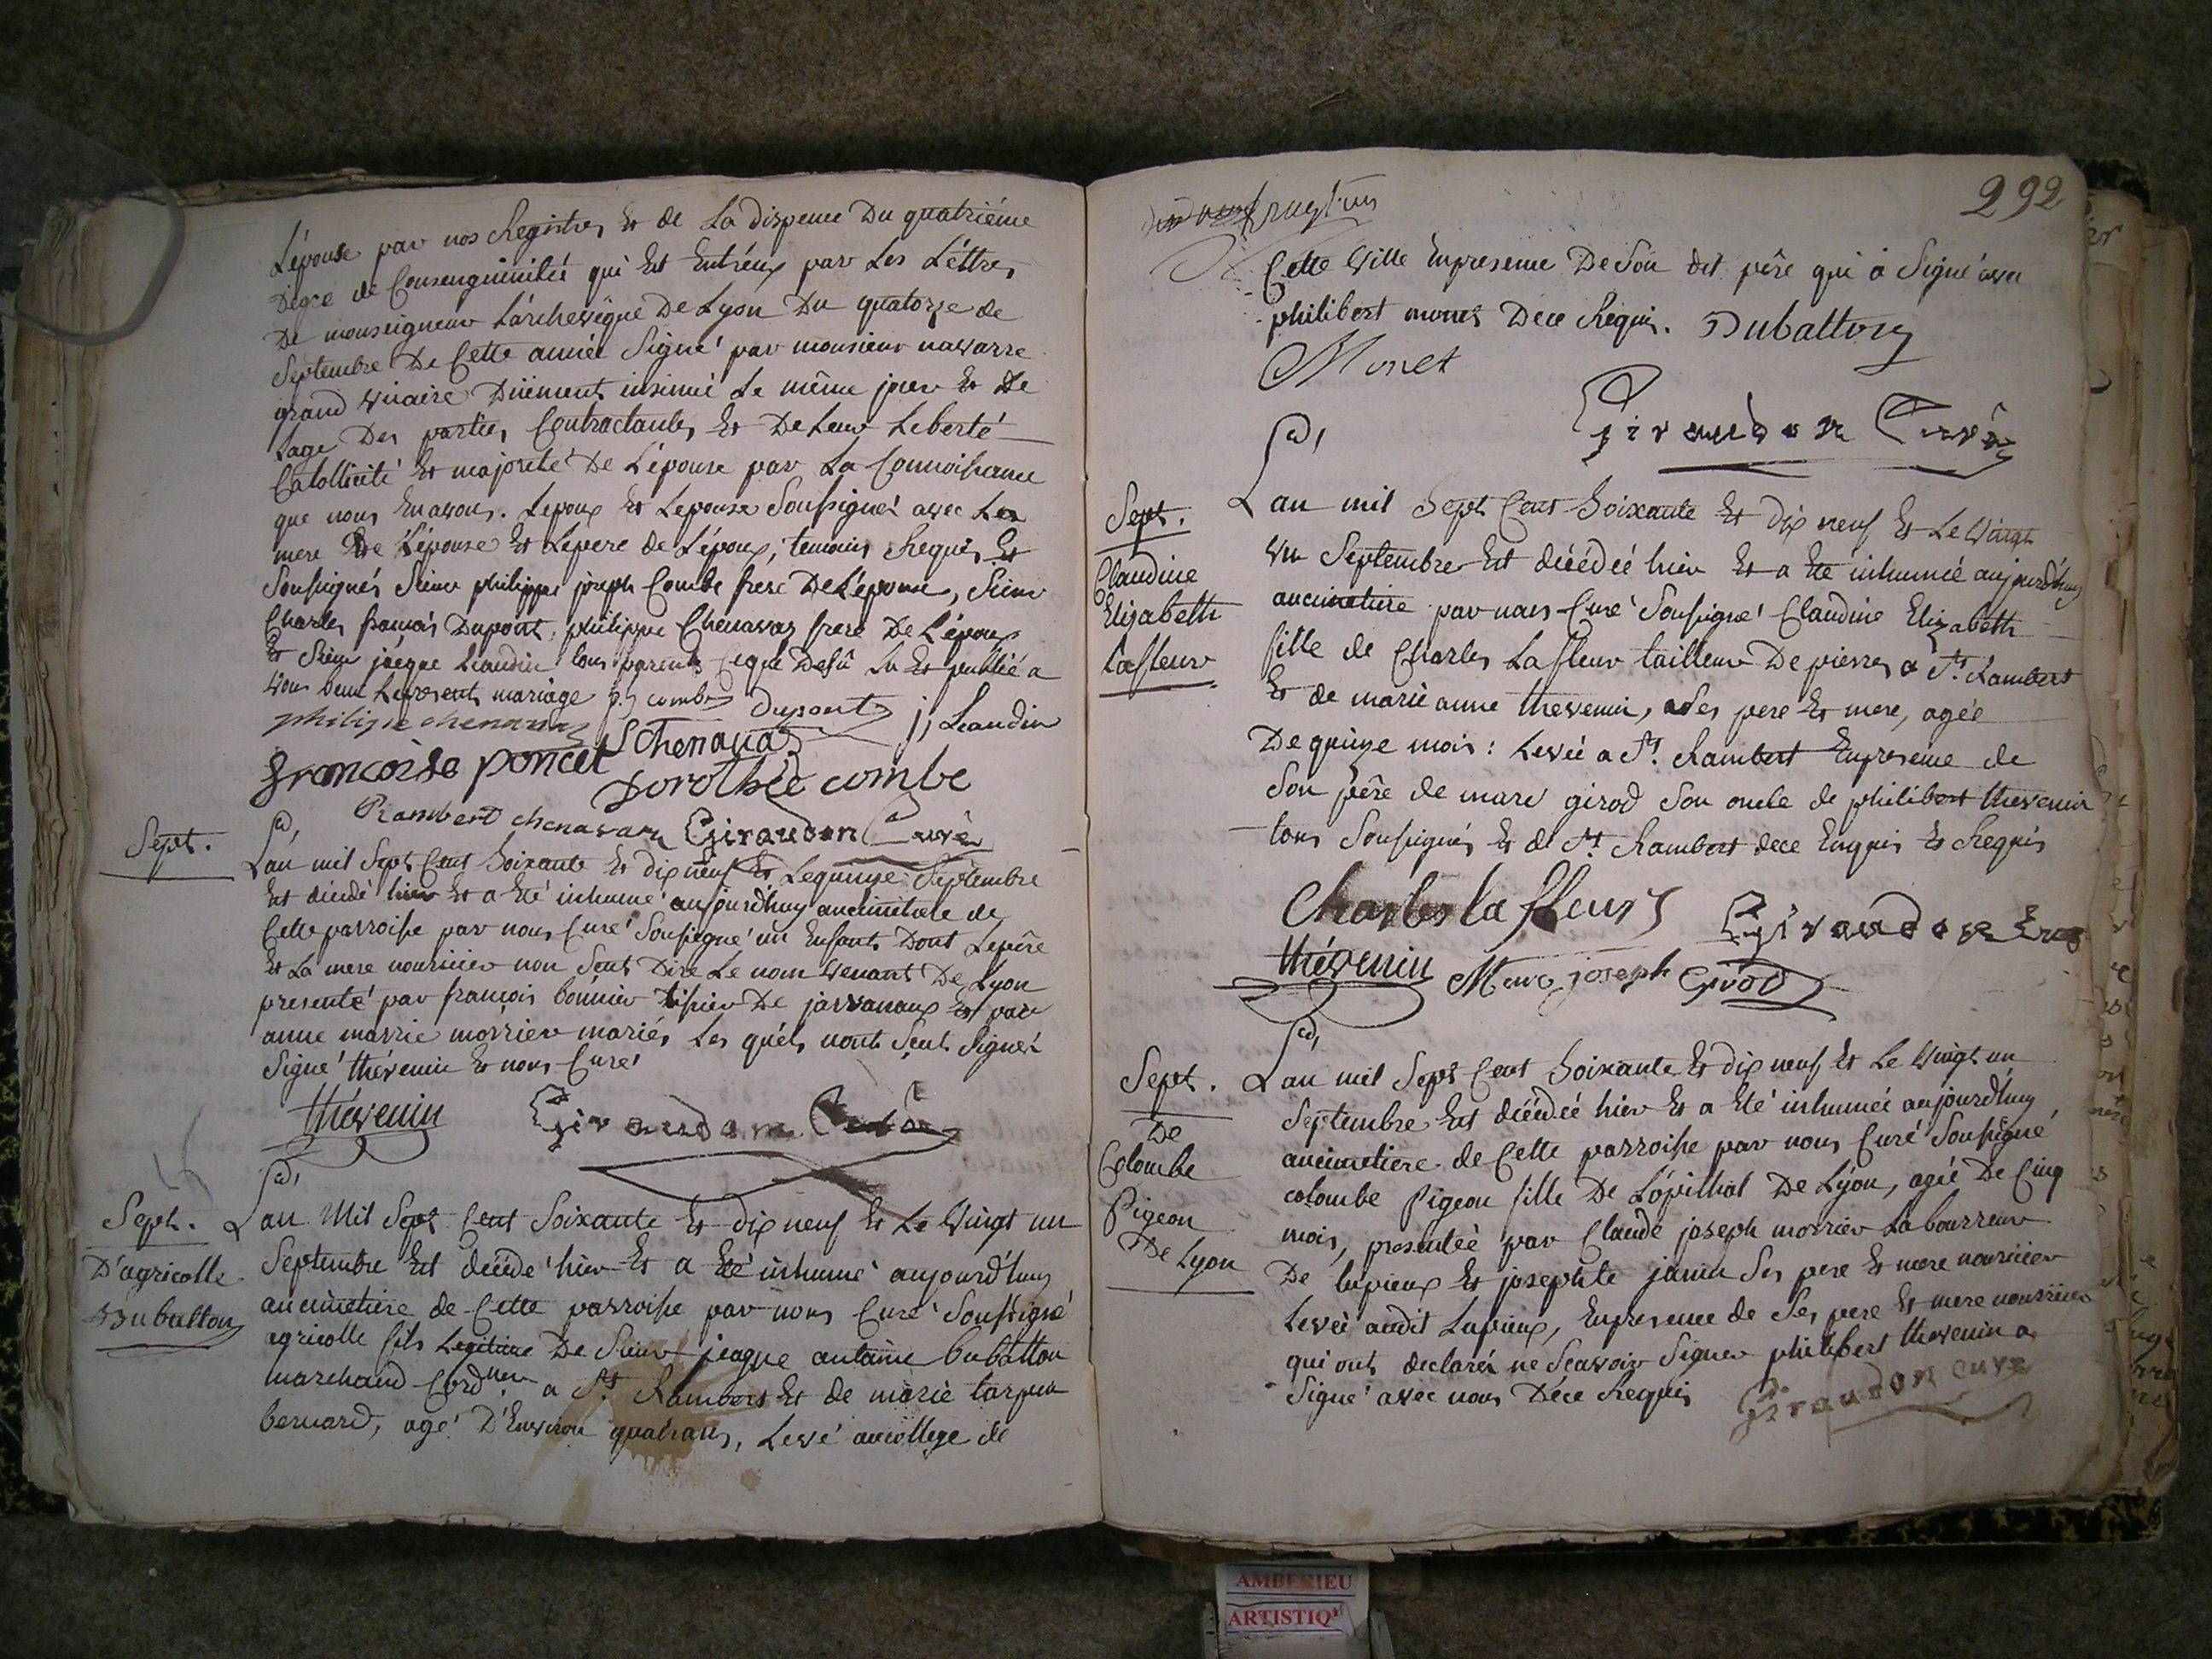 Lépouse par nos Registres Et de La dispense Du quatriéme
dégré de Consenguinitée qui Est Entréux par Les Léttres
De monseigneur Lárchevêque De Lyon Du quatorze de
Septembre De Cette année Signé par monsieur navarre
grand vicaire Düement insinué Le même jour Et De
Lage Des parties Contractantes Et De Leur Leberté
Catollicité Et majorité De Lépouse par La Connoissance
que nous En avons. Lepoux Et Lepouse Soussignés avec La
mere De Lépouse Et Lepere de Lépoux, temoins Requis Et
Soussignés Sieur philippe joseph Combe frere De Lépouse, Sieur
Charles francois Dupont, philippe Chenavaz frere De Lépoux
Et Sieur jacque Leaudin tous parents
Le present mariage p. j combe Dupont jj Leaudin
philippe chenavaz
S Chenavaz
francoise poncet
Dorothée combe
Rambert chenavaz Giraudon Curé
Sept.
Lan mil Sept Cent Soixante Et dix neuf Et Lequinze Septembre
Est décédé hier Et a Eté inhumé aujourdhuy aucimetiere de
Cette parroisse par nous Curé Soussigné un Enfant Dont Lepêre
Et La mere nourricier non Scut Dire Le nom venant De Lyon
presenté par françois bonnier tissier De javvanaux Et par
anne marrie morrier mariés Les quéls nonts Scut Signer
Signé thévenin Et nous Curé
thévenin
Giraudon Curé
Sept.
D'agricolle
Dubatton
Lan Mil Sept Cent Soixante Et dix neuf Et Le Vingt un
Septembre Est décédé hier Et a Eté inhumé aujourdhuy
aucimetiere de Cette parroisse par nous Curé Soussigné
agricolle fils Legitime De Sieur jeaque antoine Dubatton
marchand Cordner a St Rambert Et de marie
bernard, agé D'Environ quatrans, Levé aucollege de
292
Cette Ville Enpresence De Son dit pêre qui a Signé avec
philibert monet Dece Requis. Dubatton
Monet
Giraudon Curé
Sept.
Claudine
Elizabeth
Lafleur
Lan mil Sept Cent Soixante Et dix neuf Et Le Vingt
un Septembre Est décédée hier Et a Eté inhumée aujourdhuy
aucimetiere par nous Curé Soussigné Claudine Elizabeth
fille de Charles Lafleur tailleur De pierres a St Rambert
Et de marie anne thevenin, Ses pere Et mere, agée
De quinze mois: Levée a St. Rambert Enpresence de
Son pêre de marc girod Son oncle de philibert thevenin
tous Soussignés Et de St Rambert dece Enquis Et Requis
Charles la fleur
Giraudon Curé
thévenin Marc joseph Girod
Sept.
De
Colombe
Pigeon
De Lyon
Lan mil Sept Cent Soixante Et dix neuf Et Le Vingt un
Septembre Est décédée hier Et a Eté inhumée aujourdhuy
aucimetiere de Cette parroisse par nous Curé Soussigné
colombe Pigeon fille De Lópithal De Lyon, agée De Cinq
mois, presentée par Claude joseph morrier Labourreur
De lupieux Et josephte janin Ses pere Et mere nouricier
Levée audit Lupieux, Enpresence de Ses pere Et mere nourricier
qui onts declarés ne Scavoir Signer philibert thevenin a
Signé avec nous Déce Requis
Giraudon curé
AMBERIEU
ARTISTIQ